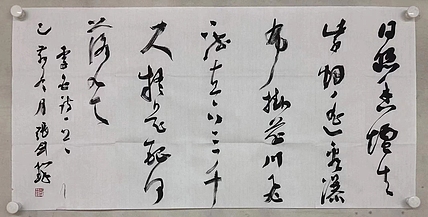 日照香炉生
紫烟遥看瀑
布挂前川飞
流直下三千
尺疑是银河
落九天
李白诗一首